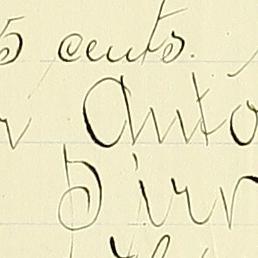 5 cents.
r Anto
Dirr